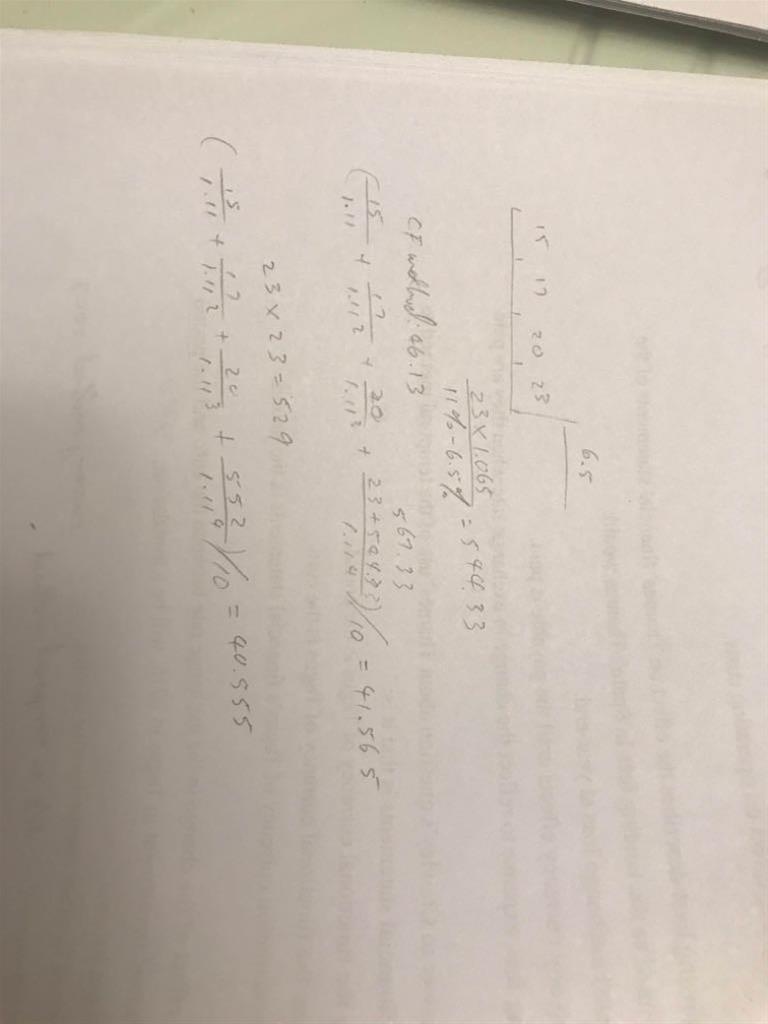 6.5
15 17 20 23
23×1.065 / 11%-6.5% = 544.33
CF method: 46.13 567.33
(15/1.11 + 17/1.11² + 20/1.11³ + 23+544.33/1.11⁴)/10 = 41.565
23×23=529
(15/1.11 + 17/1.11² + 20/1.11³ + 552/1.11⁴)/10 = 40.555